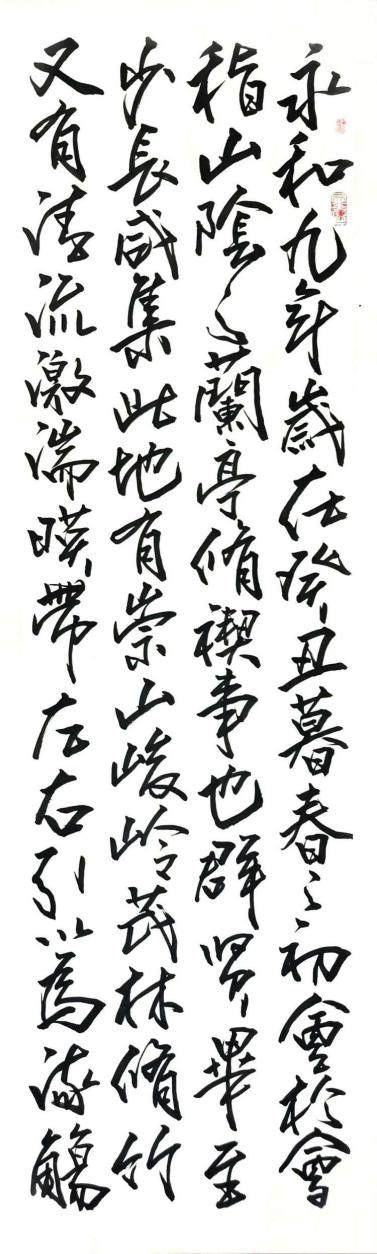 永和九年歲在癸丑暮春之初會於會
稽山陰之蘭亭脩禊事也群賢畢至
少長咸集此地有崇山峻岭茂林脩竹
又有清流激湍暎帶左右引以為流觴